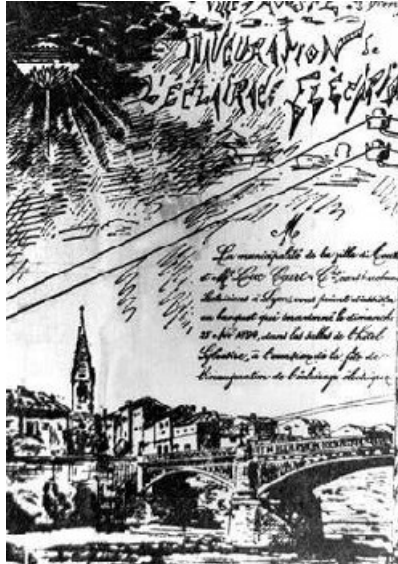 INAUGURATION de
L'ÉCLAIRAGE ÉLECTRIQ
M
La municipalité de la ville
et Mrs Luc Court & Cie
à Lyon, vous prient d'assister
au banquet qui sera donné le dimanche
25 1894, dans les salles de l'hôtel
à l'occasion de la fête de
l'inauguration de l'éclairage électrique